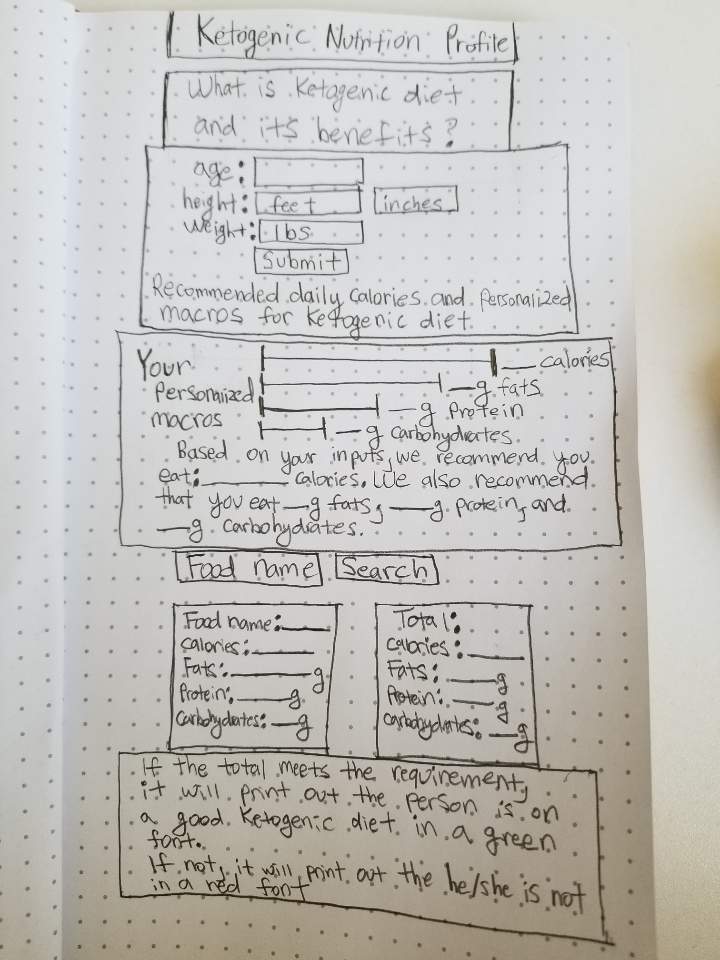 Ketogenic Nutrition Profile
What is Ketogenic diet
and its benefits?
age:
height: feet inches
weight: lbs
Submit
Recommended daily calories and personalized
macros for Ketogenic diet.
Your ___ calories
Personalized __g fats
macros __g Protein
__g carbohydrates.
Based on your inputs, we recommend you
eat: ______ calories. We also recommend
that you eat __g fats, ___g protein, and
__g carbohydrates.
Food name Search
Food name: ____
Calories: ____
Fats: ____g
Protein: ____g
Carbohydrates: __g
Total:
Calories: ____
Fats: ___g
Protein: ___g
Carbohydrates: __g
If the total meets the requirement,
it will print out the person is on
a good Ketogenic diet in a green
font.
If not, it will print out the he/she is not
in a red font